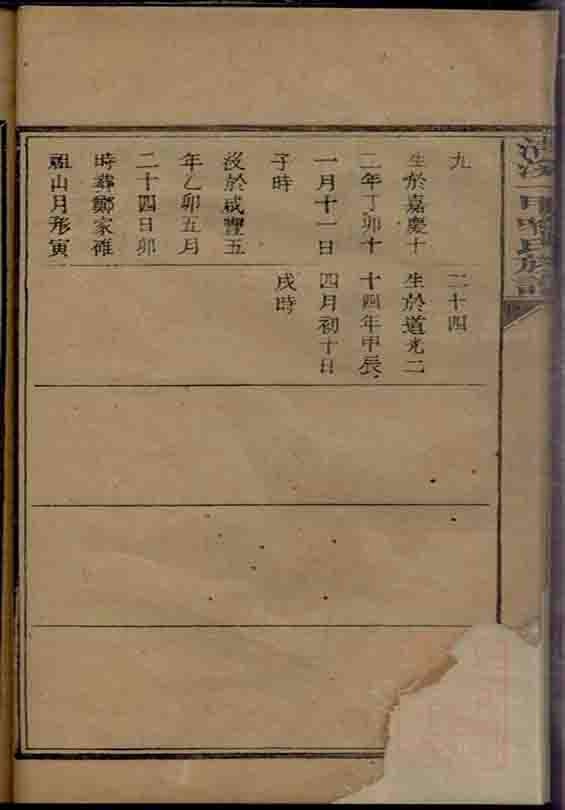 九
生於嘉慶十
二年丁卯十
一月十一日
子時
沒於咸豐五
年乙卯五月
二十四日卯
時葬鄭家碓
祖山月形寅
二十四
生於道光二
十四年甲辰
四月初十日
戌時
氏族譜